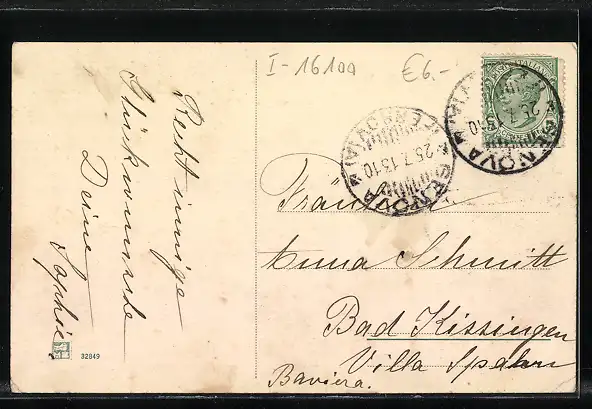 I-16100 €6.-
Recht innige
Glückwünsche
Deine
Sophie
32849
GENOVA
25.7.13-10
GENOVA
Fräulein
Anna Schmitt
Bad Kissingen
Villa Spahn
Baviera.